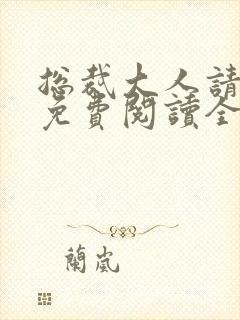 总裁大人請
免費閱讀全
蘭嵐